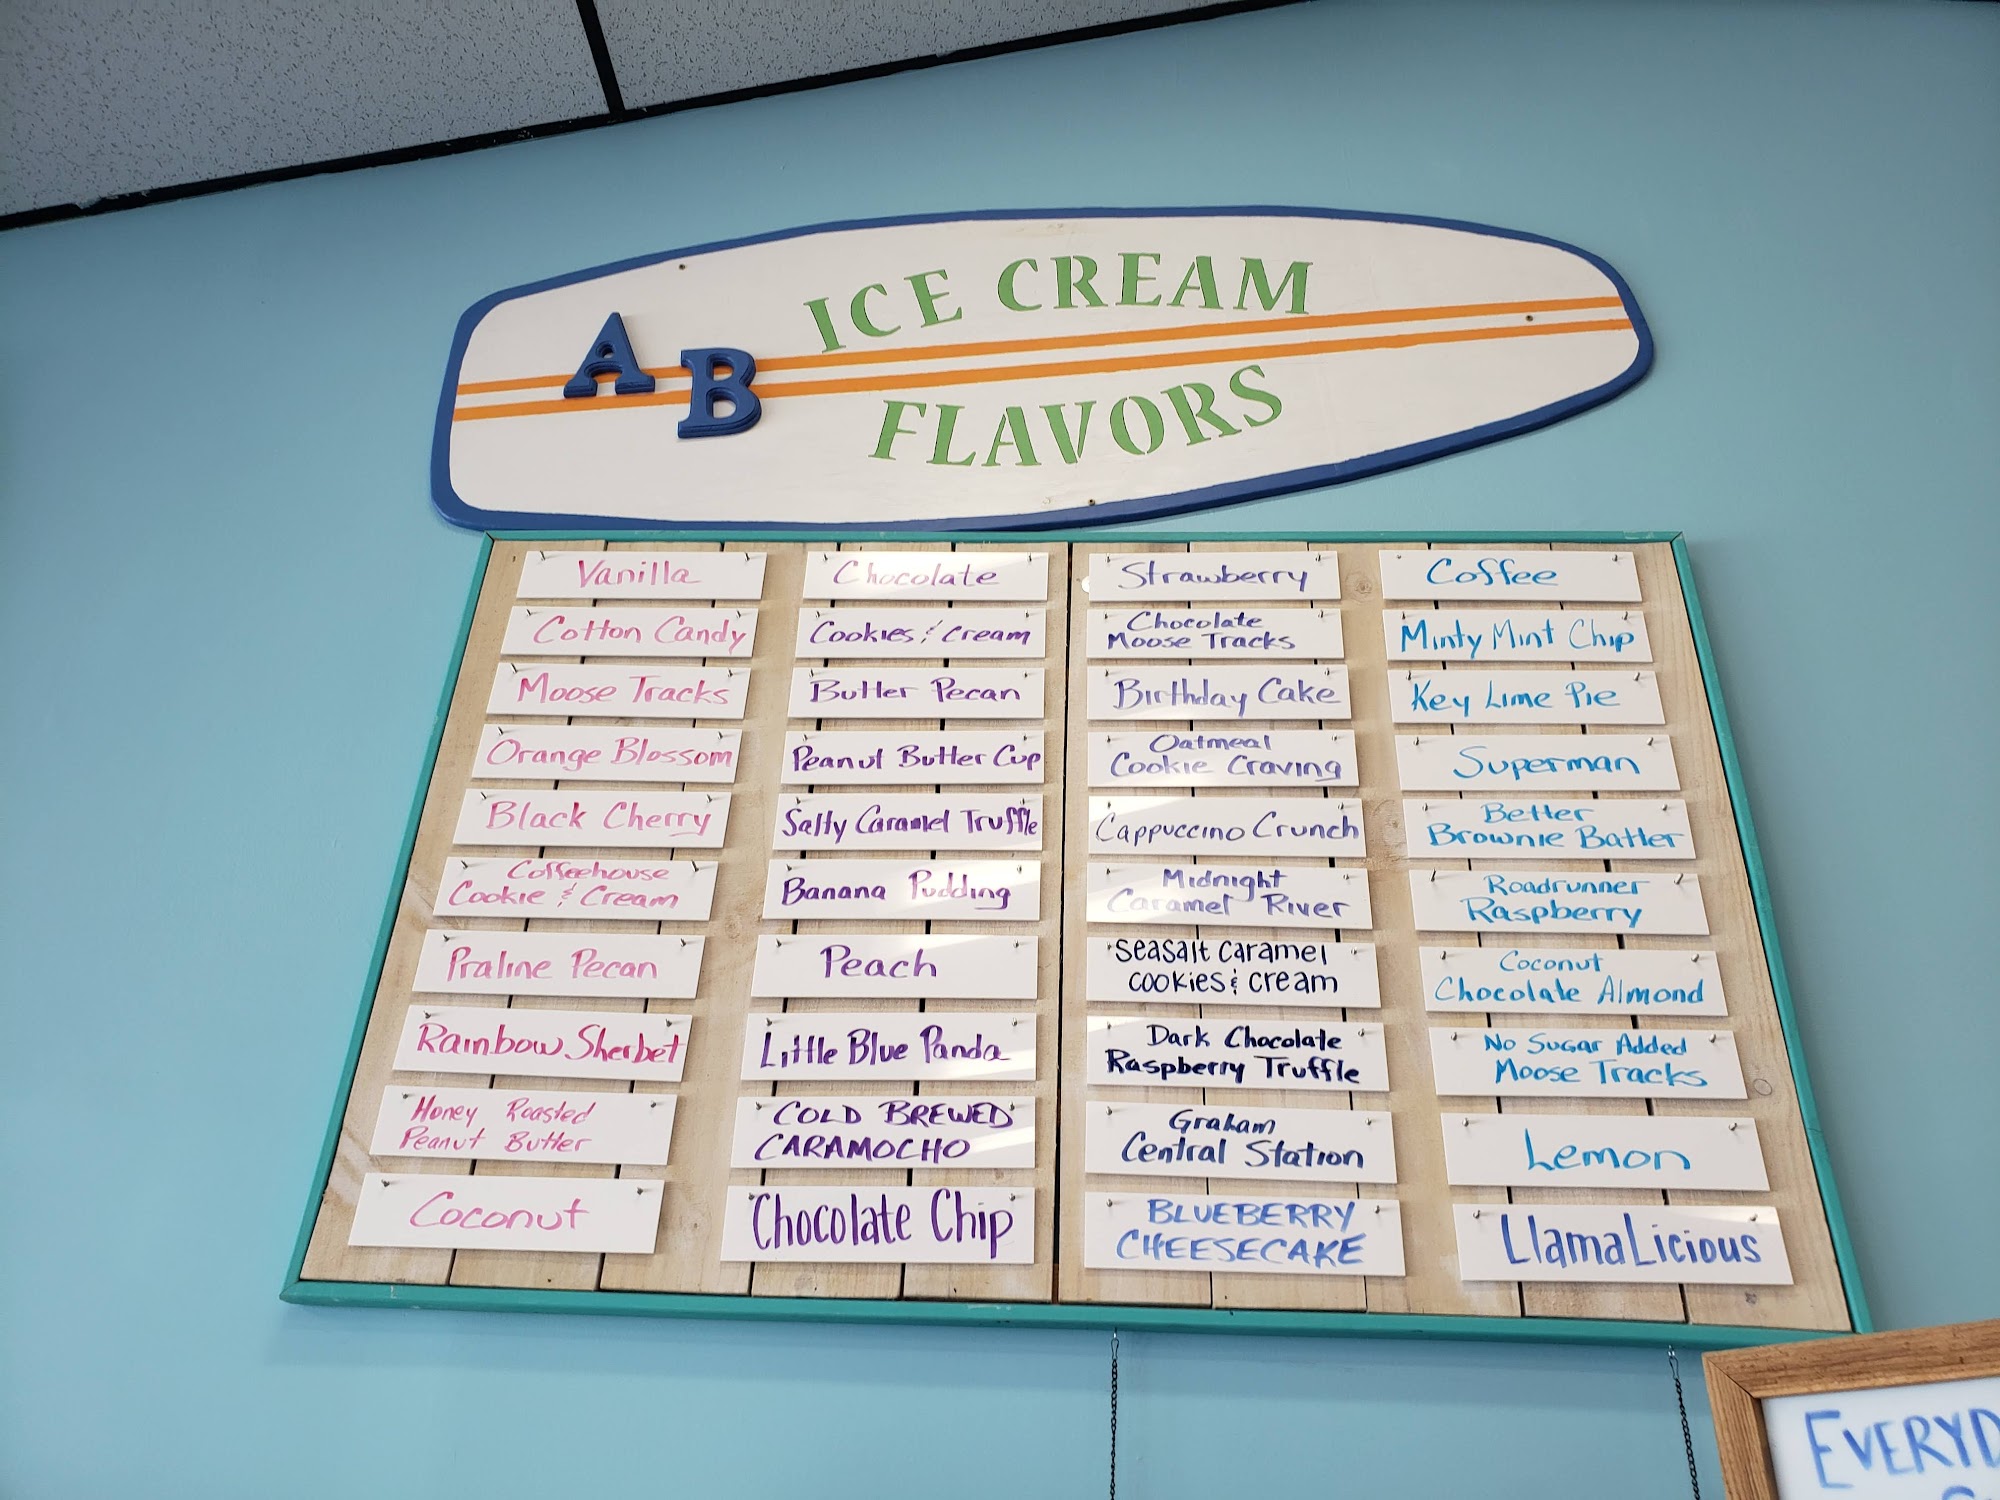 A B
ICE CREAM
FLAVORS
Vanilla
Cotton Candy
Moose Tracks
Orange Blossom
Black Cherry
Coffeehouse
Cookie & Cream
Praline Pecan
Rainbow Sherbet
Honey Roasted
Peanut Butter
Coconut
Chocolate
Cookies & Cream
Butter Pecan
Peanut Butter Cup
Salty Caramel Truffle
Banana Pudding
Peach
Little Blue Panda
COLD BREWED
CARAMOCHO
Chocolate Chip
Strawberry
Chocolate
Moose Tracks
Birthday Cake
Oatmeal
Cookie Craving
Cappuccino Crunch
Midnight
Caramel River
Seasalt Caramel
Cookies & Cream
Dark Chocolate
Raspberry Truffle
Graham
Central Station
BLUEBERRY
CHEESECAKE
Coffee
Minty Mint Chip
Key Lime Pie
Superman
Better
Brownie Batter
Roadrunner
Raspberry
Coconut
Chocolate Almond
No Sugar Added
Moose Tracks
Lemon
LlamaLicious
EVERYD